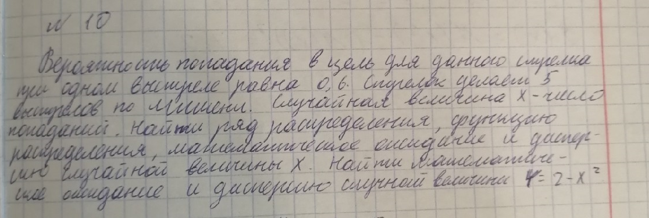 № 10
Вероятность попадания в цель для данного стрелка
при одном выстреле равна 0,6. Стрелок делает 5
выстрелов по мишени. Случайная величина X - число
попаданий. Найти ряд распределения, функцию
распределения, математическое ожидание и диспер-
сию случайной величины X. Найти математиче-
ское ожидание и дисперсию случайной величины Y = 2 - X²